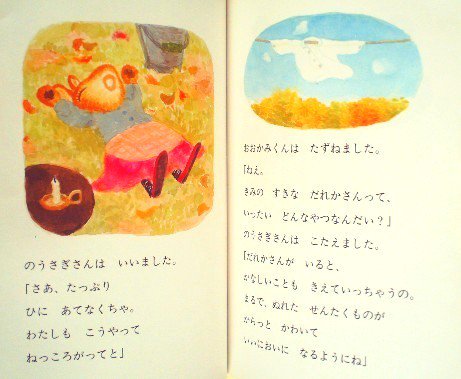 のうさぎさんは いいました。
「さあ、たっぷり
ひに あてなくちゃ。
わたしも こうやって
ねっころがってと」
おおかみくんは たずねました。
「ねえ。
きみの すきな だれかさんって、
いったい どんなやつなんだい？」
のうさぎさんは こたえました。
「だれかさんが いると、
かなしいことも きえていっちゃうの。
まるで、ぬれた せんたくものが
からっと かわいて
いいにおいに なるようにね」